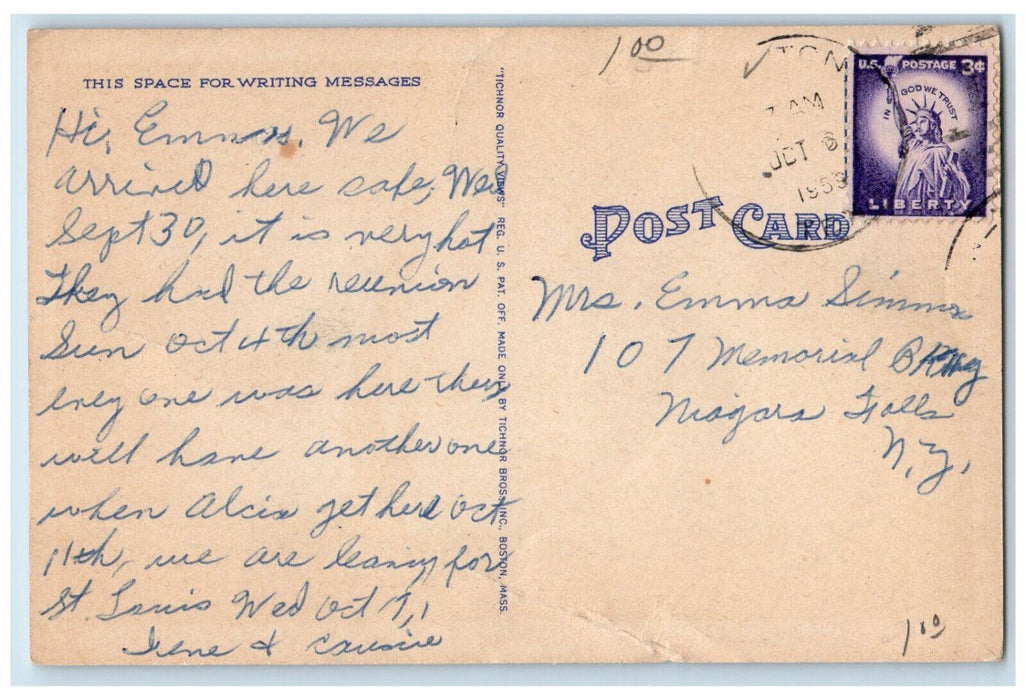 THIS SPACE FOR WRITING MESSAGES
Hi, Emma, We
arrived here safe, Wed
Sept 30, it is very hot
They had the reunion
Sun Oct 4th most
evey one was here they
will have another one
when Alcia get here Oct
11th, we are leaving for
St. Louis Wed Oct 7,
Irene &
"TICHNOR QUALITY VIEWS" REG. U. S. PAT. OFF. MADE ONLY BY TICHNOR BROS., INC., BOSTON, MASS.
1 00
7 AM
OCT 6
1959
U.S. POSTAGE 3¢
IN GOD WE TRUST
LIBERTY
POST CARD
Mrs. Emma Simms
107 Memorial Pkwy
Niagara Falls
N.Y.
1 00